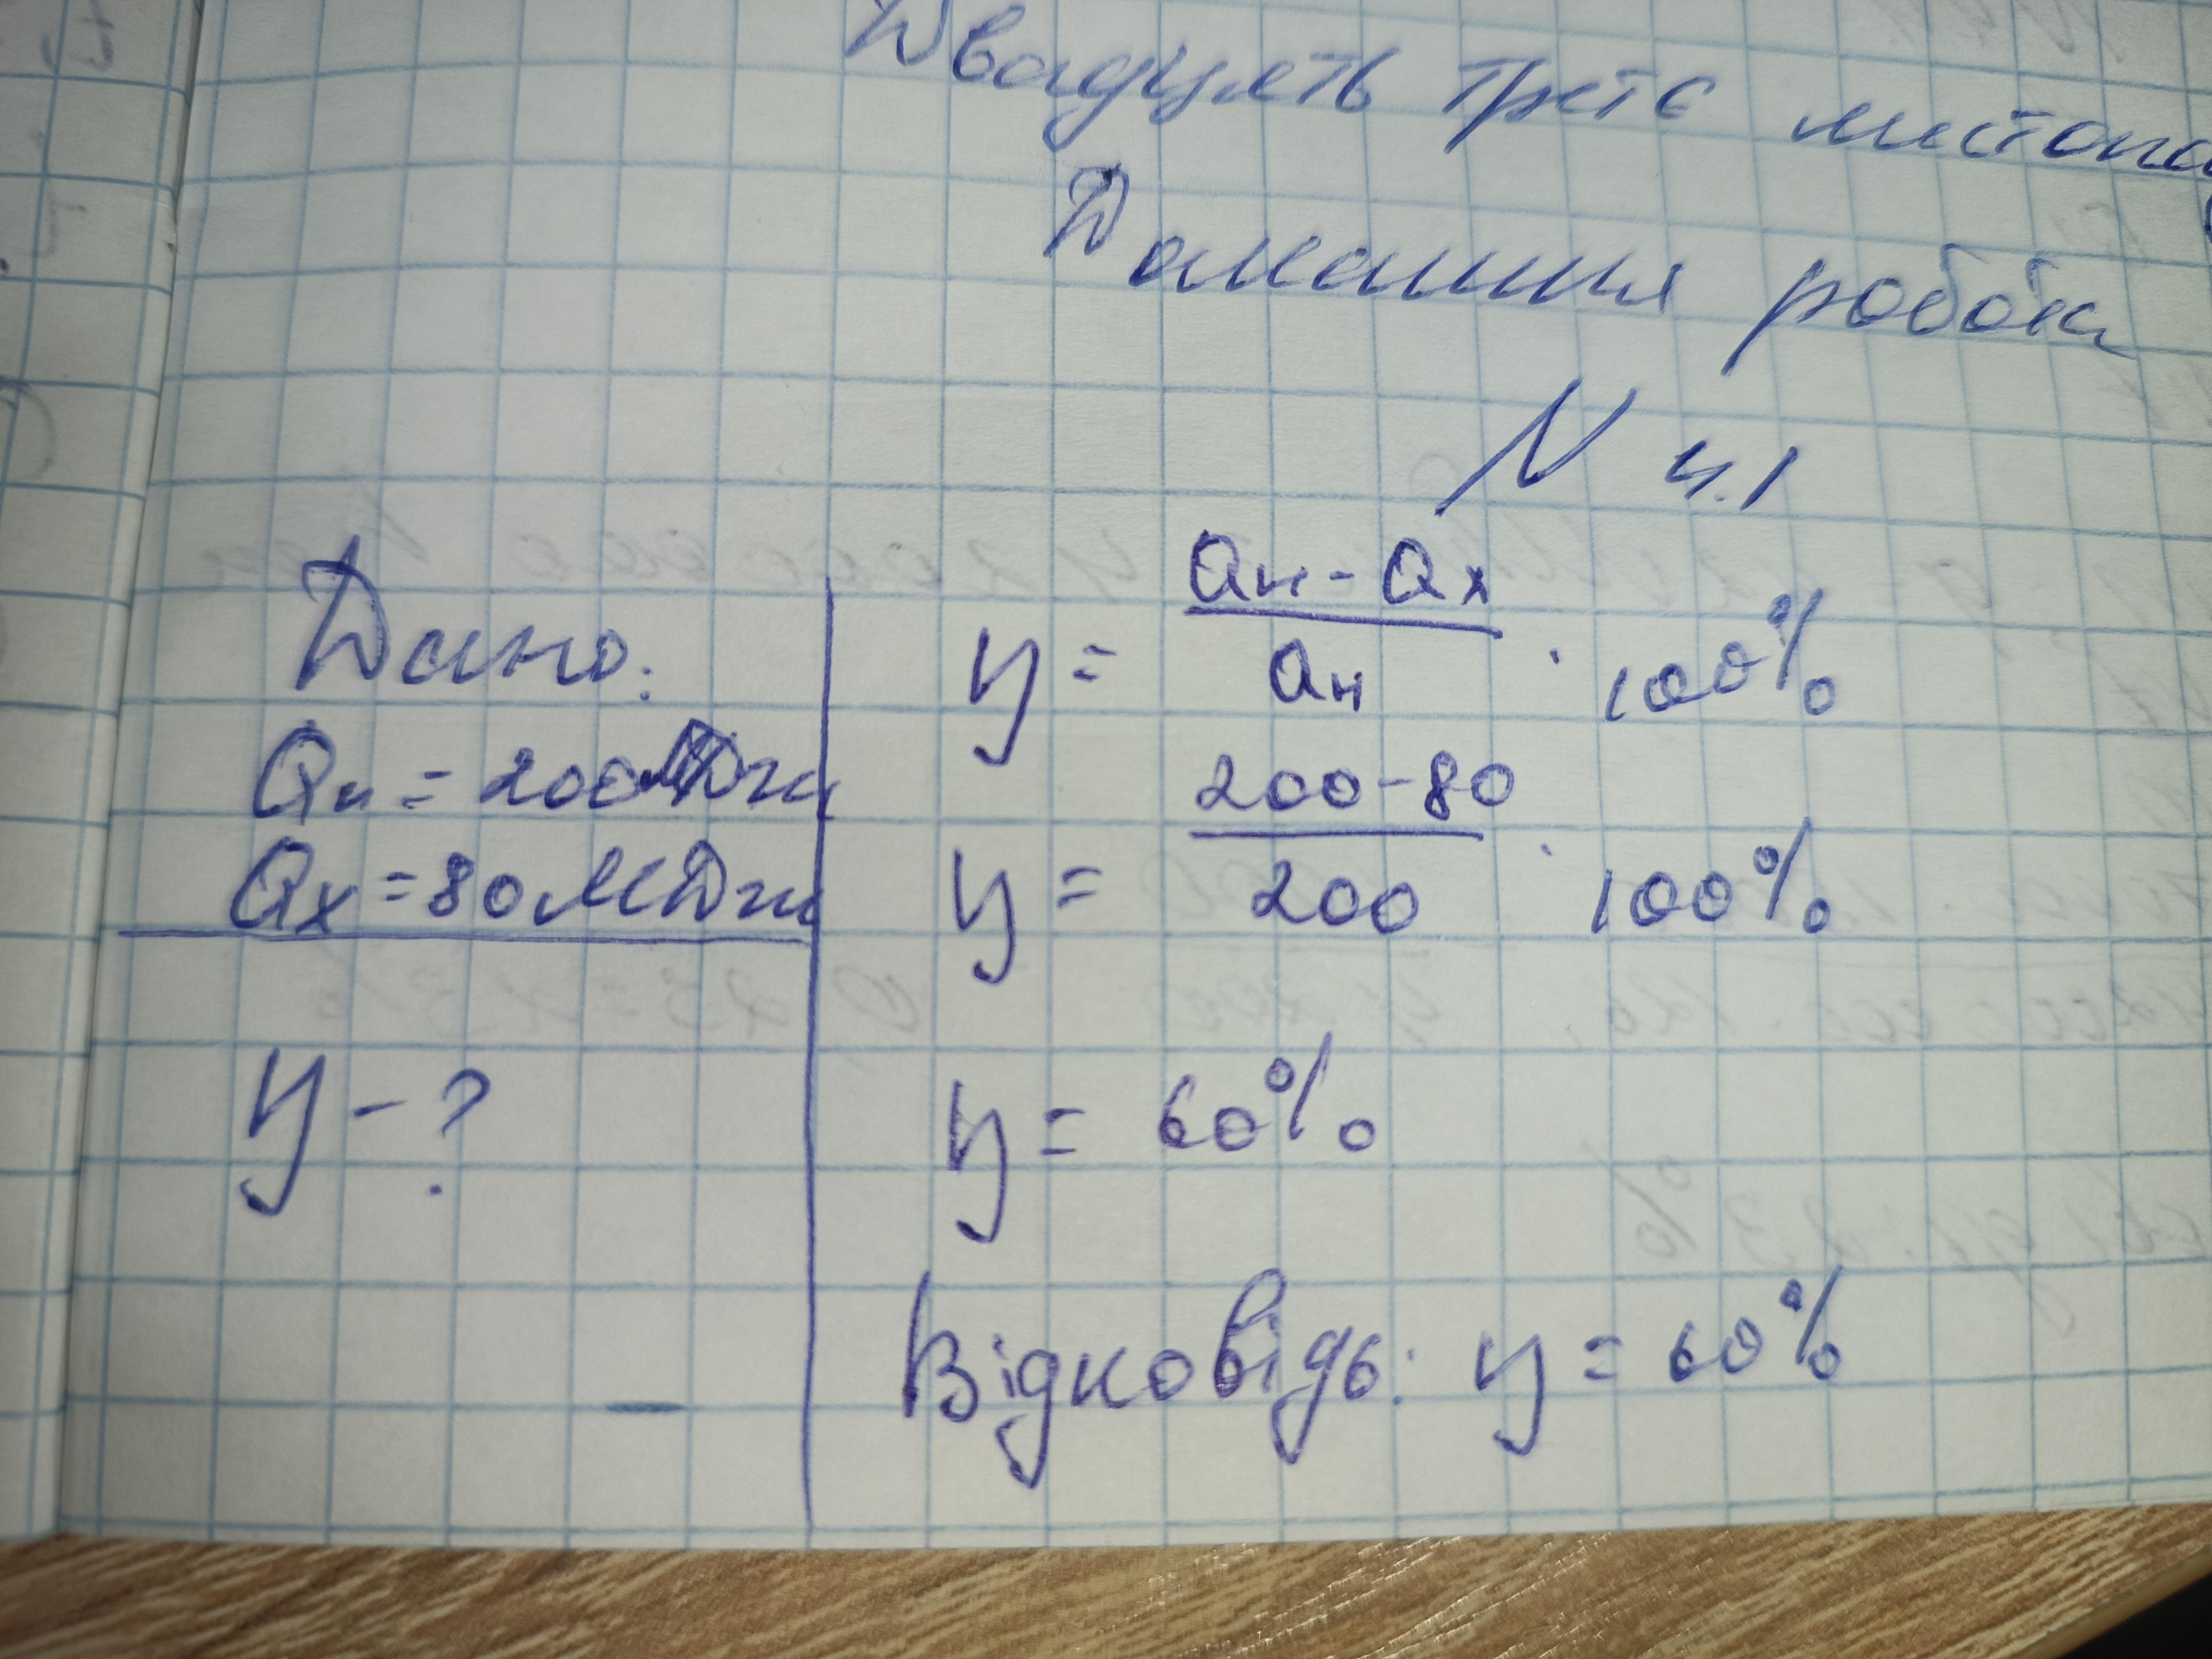 Двадцять третє листопа
Домашня робота
N 4.1
Дано:
Qн = 200МДж
Qх = 80МДж
y - ?
y = Qн - Qх / Qн · 100%
y = 200 - 80 / 200 · 100%
y = 60%
Відповідь: y = 60%